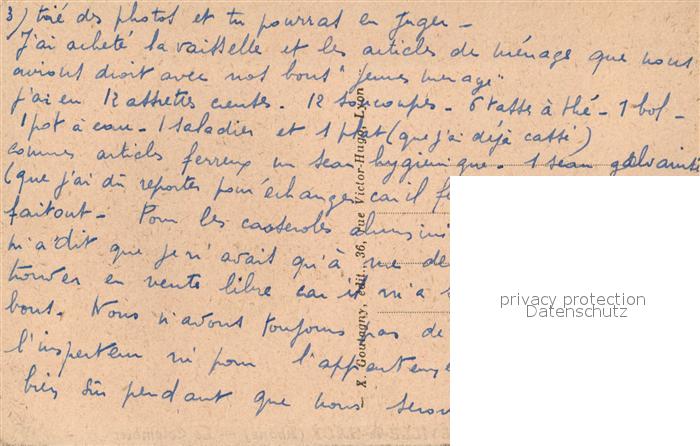 3) tiré des photos et tu pourras en juger -
J'ai acheté la vaisselle et les articles de ménage que nous
avions droit avec nos bons "jeunes menage"
j'ai eu 12 assiettes creuses - 12 soucoupes - 6 tasses à thé - 1 bol -
1 pot à eau - 1 saladier et 1 plat (que j'ai déjà cassé)
comme articles ferreux un seau hygienique - 1 seau galvanisé
(que j'ai dû reporter pour échanger car il f
faitout - Pour les casseroles alumini
m'a dit que je n'avait qu'à me de
trouver en vente libre car il m'a
bons. Nous n'avons toujours pas de
l'inspecteur ni pour l'appartement
bien sûr pendant que nous serons
X. Goutagny, édit., 36, rue Victor-Hugo, Lyon
privacy protection
Datenschutz